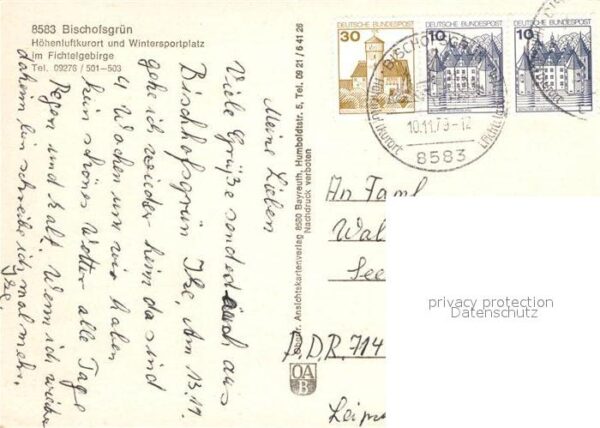 8583 Bischofsgrün
Höhenluftkurort und Wintersportplatz
im Fichtelgebirge
Tel. 09276 / 501-503
Meine Lieben
Viele Grüße sendet euch aus
Bischofsgrün Ihr, Am 13.11.
gehe ich wieder heim da sind
4 Wochen um wir haben
kein schönes Wetter alle Tage
Regen und kalt. Wenn ich wieder
daheim bin schreibe ich mal mehr.
Ober. Ansichtskartenverlag 8580 Bayreuth, Humboldtstr. 5, Tel. 09 21 / 6 41 26
Nachdruck verboten
OA
B
30
DEUTSCHE BUNDESPOST
10
DEUTSCHE BUNDESPOST
10
DEUTSCHE BUNDESPOST
BISCHOFSGRÜN
10.11.79-12
8583
An Faml.
Wal
See
D.D.R. 714
Leipz
privacy protection
Datenschutz